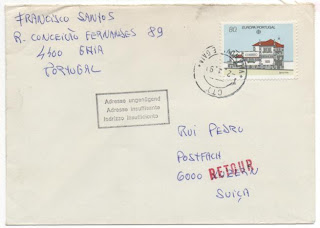 FRANCISCO SANTOS
R. CONCEIÇÃO FERNANDES 89
4400 GAIA
PORTUGAL
80
EUROPA PORTUGAL
Adresse ungenügend
Adresse insuffisante
Indirizzo insufficiente
RUI PEDRO
POSTFACH
6000 LUZERN
RETOUR
SUIÇA